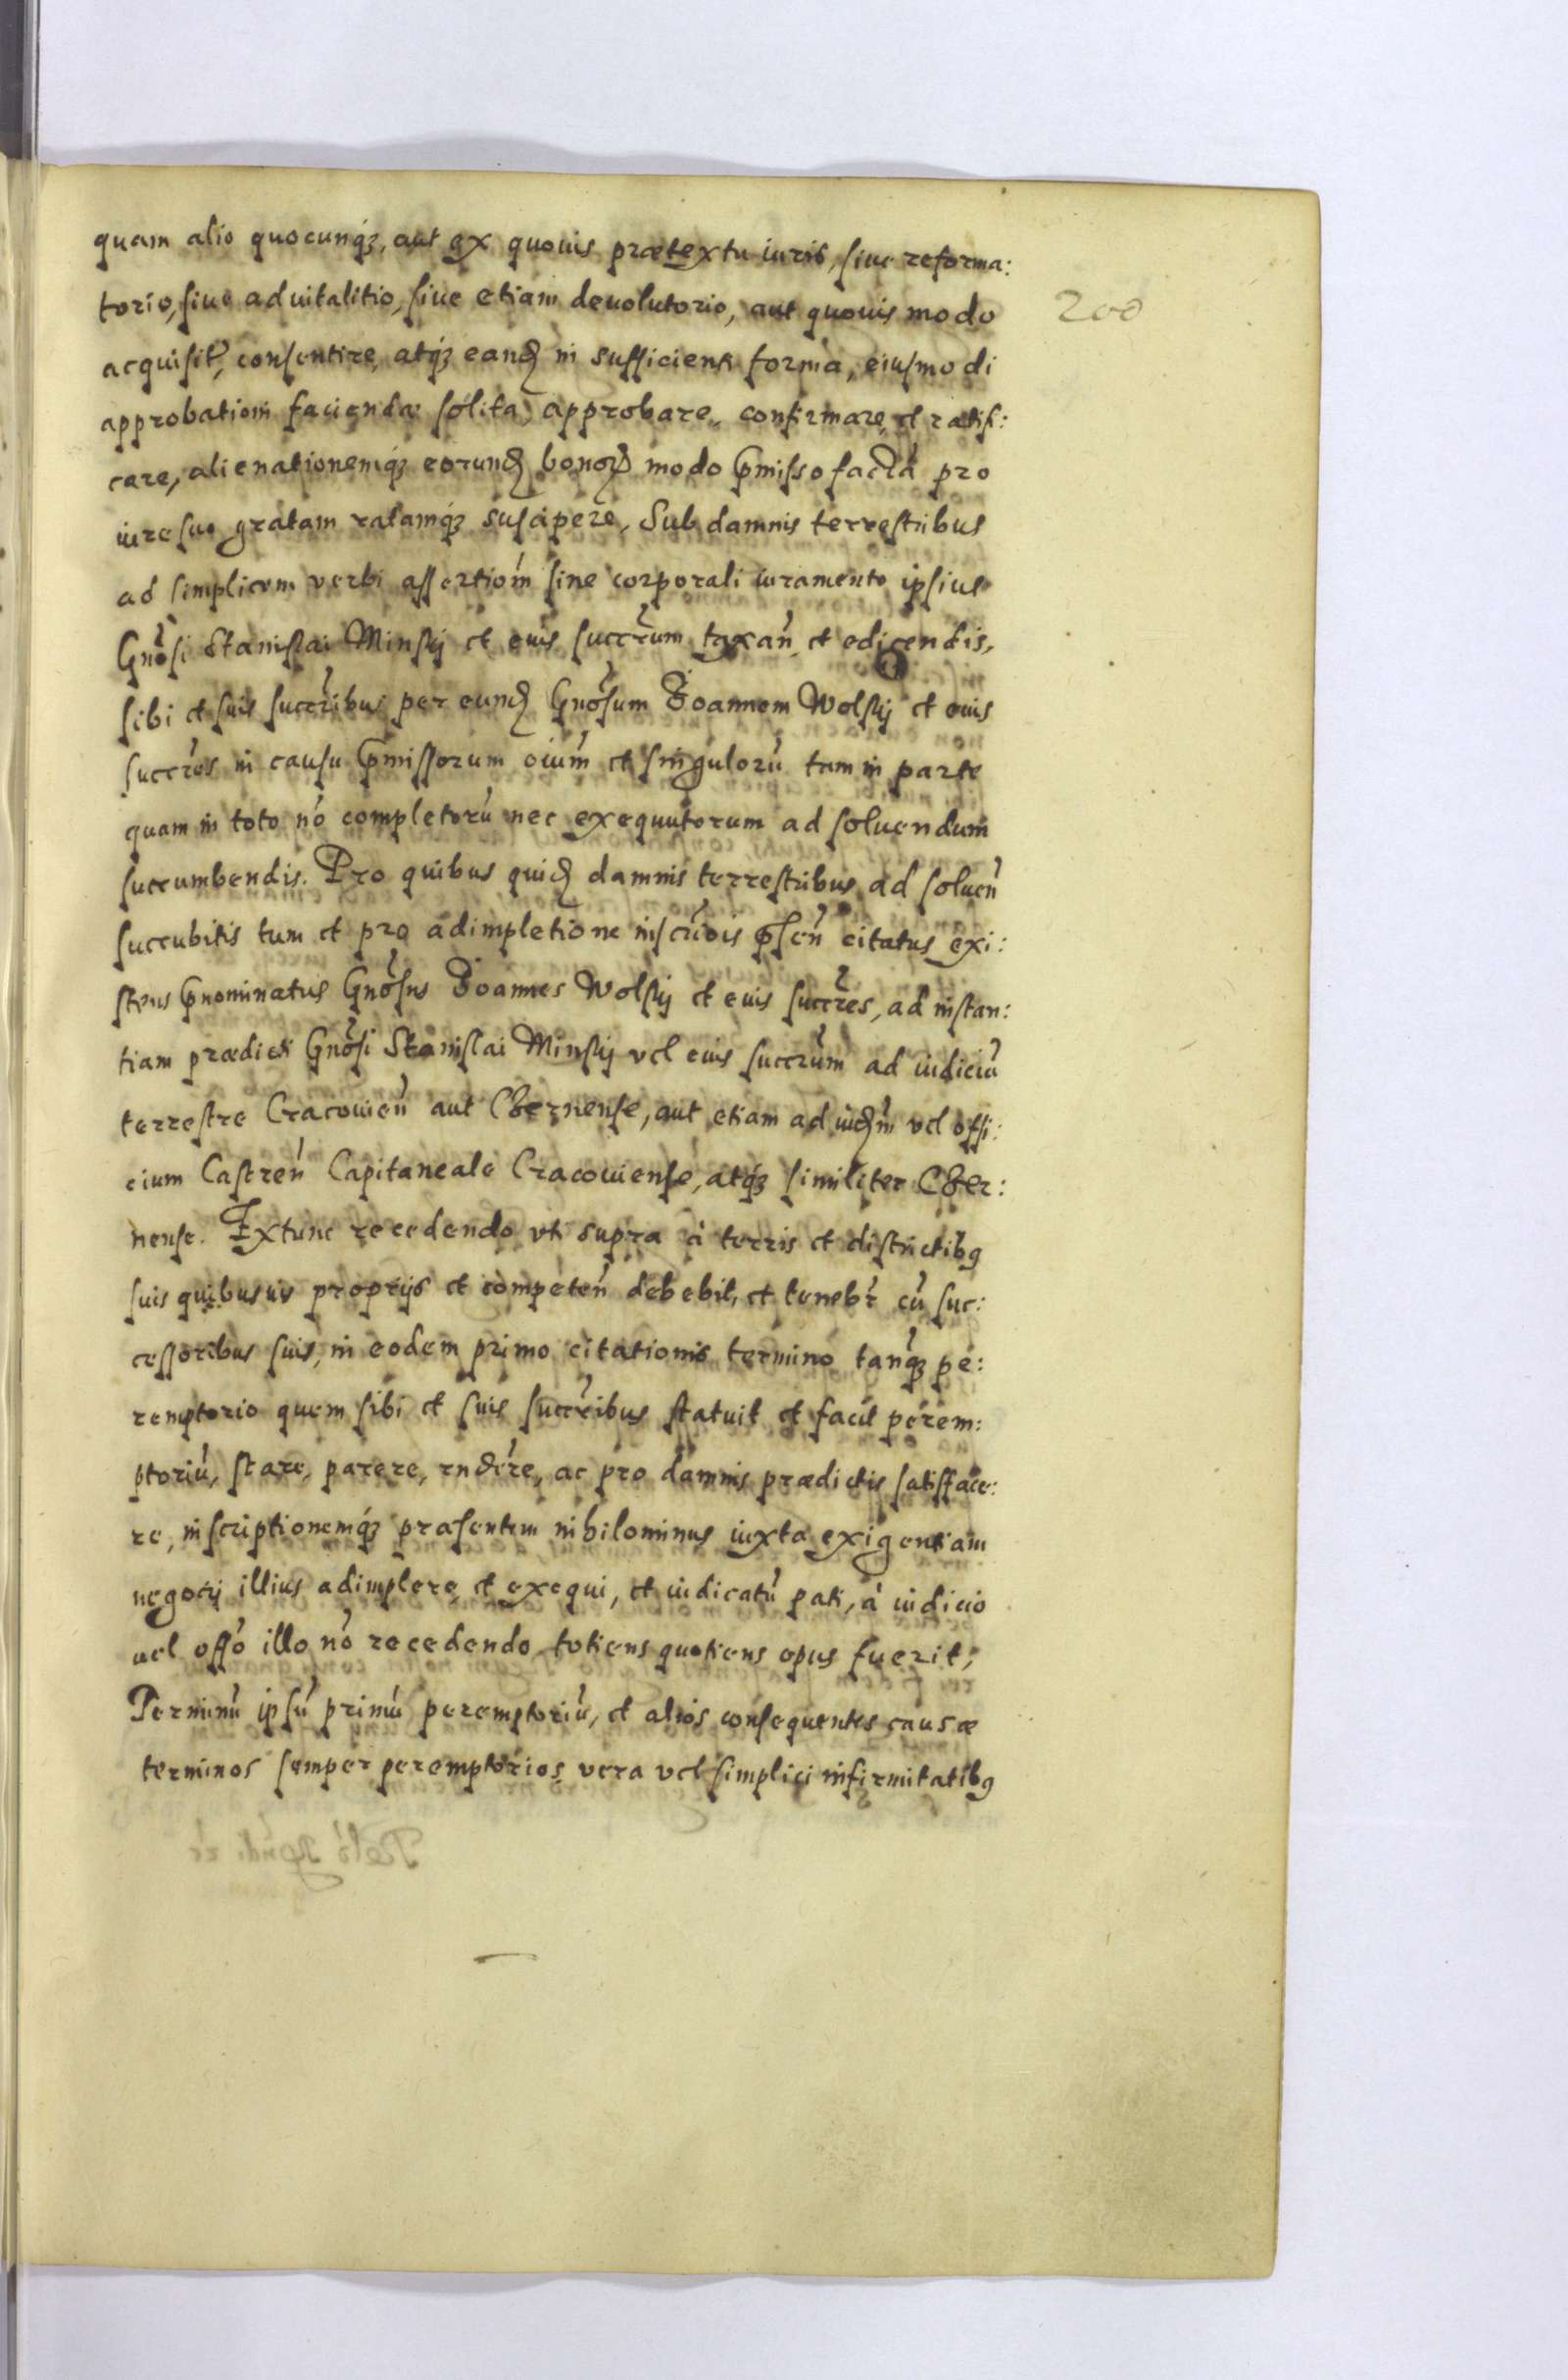 quam alio quocunqꝫ, aut ex quouis prætextu iuris, siue reforma:
torio, siue aduitalitio, siue etiam deuolutorio, aut quouis modo
200
acquisit', consentire, atqꝫ eandꝫ in sufficienti forma, eiusmodi
approbationi facienda solita, approbare, confirmare, et ratifi:
care, alienationemqꝫ eorundꝫ bonorꝫ modo p̄misso factā pro
iure suo gratam ratamqꝫ suscipere, Sub damnis terrestribus
ad simplicem verbi assertiōm sine corporali iuramento ipsius
Gnōsi Stanislai Minsky et euis succr̄um taxan̄ et edicendis,
sibi et suis succr̄ibus per eundꝫ Gnōsum Joannem Wolsky et euis
succr̄es in causu p̄missorum oiūm et singulorū tam in parte
quam in toto nō completorū nec exequutorum ad soluendum
succumbendis. Pro quibus quidꝫ damnis terrestribus ad soluen̄
succubitis tum et pro adimpletione inscr̄iōis p̄sen̄ citatus exi:
stens p̄nominatus Gnōsus Joannes Wolsky et euis succr̄es, ad instan:
tiam prædicti Gnōsi Stanislai Minsky vel euis succr̄um ad iudiciū
terrestre Cracouien̄ aut Chernense, aut etiam ad iudꝫm vel offi:
cium Castren̄ Capitaneale Cracouiense, atqꝫ similiter Cher:
nense. Extunc recedendo vti supra à terris et districtibꝰ
suis quibusuis proprijs et competen̄ debebit, et tenebr̄ cū suc:
cessoribus suis, in eodem primo citationis termino tanqꝫ pe:
remptorio quem sibi et suis succr̄ibus statuit et facit perem:
ptoriū, stare, parere, rnd̄ere, ac pro damnis prædictis satisface:
re, inscriptionemqꝫ præsentem nihilominus iuxta exigentiam
negocij illius adimplere et exequi, et iudicatū pati, à iudicio
uel offō illo nō recedendo totiens quotiens opus fuerit,
Terminū ipsū primū peremptoriū, et alios consequentes causæ
terminos semper peremptorios vera vel simplici infirmitatibꝰ